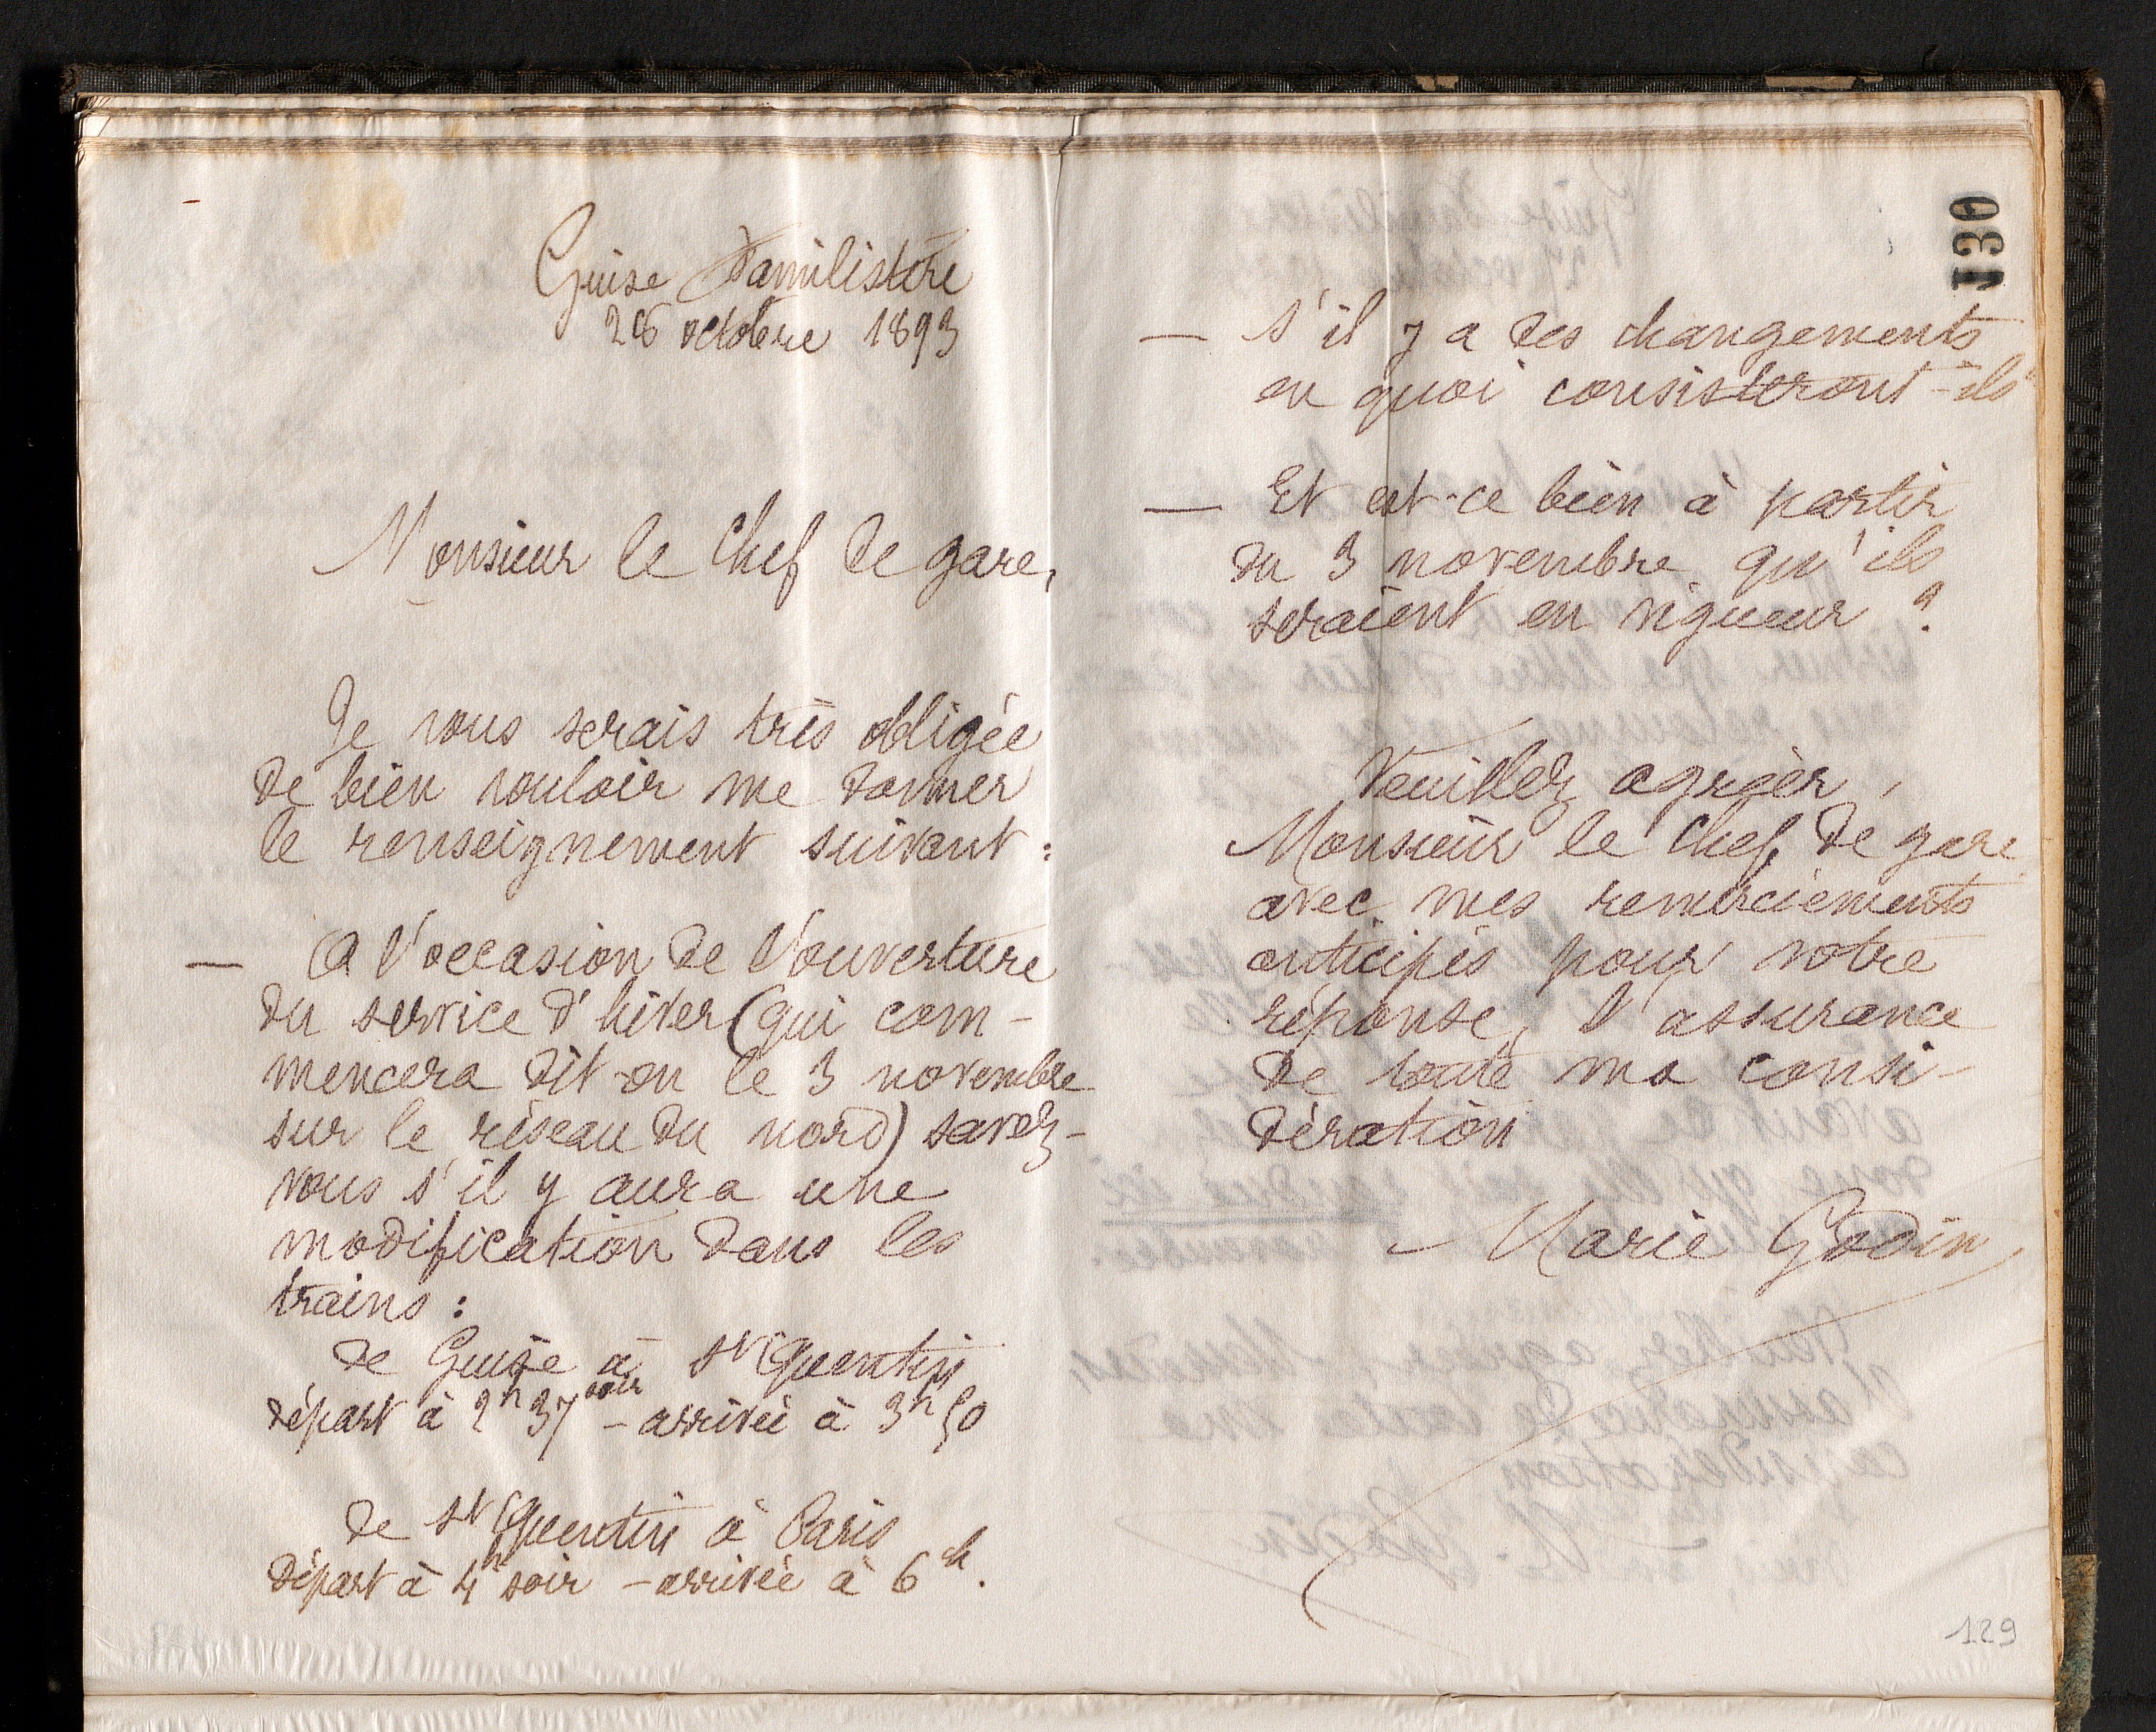 Guise Familistère
26 octobre 1893
Monsieur le Chef de gare,
Je vous serais très obligée
de bien vouloir me donner
le renseignement suivant :
— A l'occasion de l'ouverture
du service d'hiver (qui com-
mencera dit-on le 3 novembre
sur le réseau du nord) savez-
vous s'il y aura une
modification dans les
trains :
de Guise à St Quentin
départ à 2h 37 soir - arrivée à 3h 50
de St Quentin à Paris
départ à 4h soir - arrivée à 6h.
130
— s'il y a des changements
en quoi consisteront-ils
— Et est-ce bien à partir
du 3 novembre qu'ils
seraient en vigueur ?
Veuillez agréer,
Monsieur le Chef de gare
avec mes remerciements
anticipés pour votre
réponse, l'assurance
de toute ma consi-
dération
- Marie Godin
129